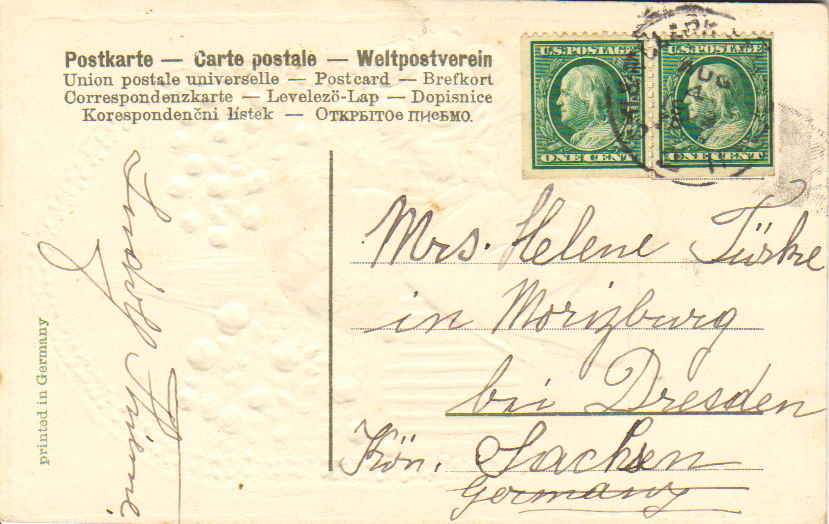 Postkarte — Carte postale — Weltpostverein
Union postale universelle — Postcard — Brefkort
Correspondenzkarte — Levelezö-Lap — Dopisnice
Korespondenčni lístek — Открытое письмо.
U.S. POSTAGE
ONE CENT
U.S. POSTAGE
ONE CENT
CLARK
AUG
Mrs. Helene Türke
in Morizburg
bei Dresden
Kön. Sachsen
Germany
printed in Germany
Thieme